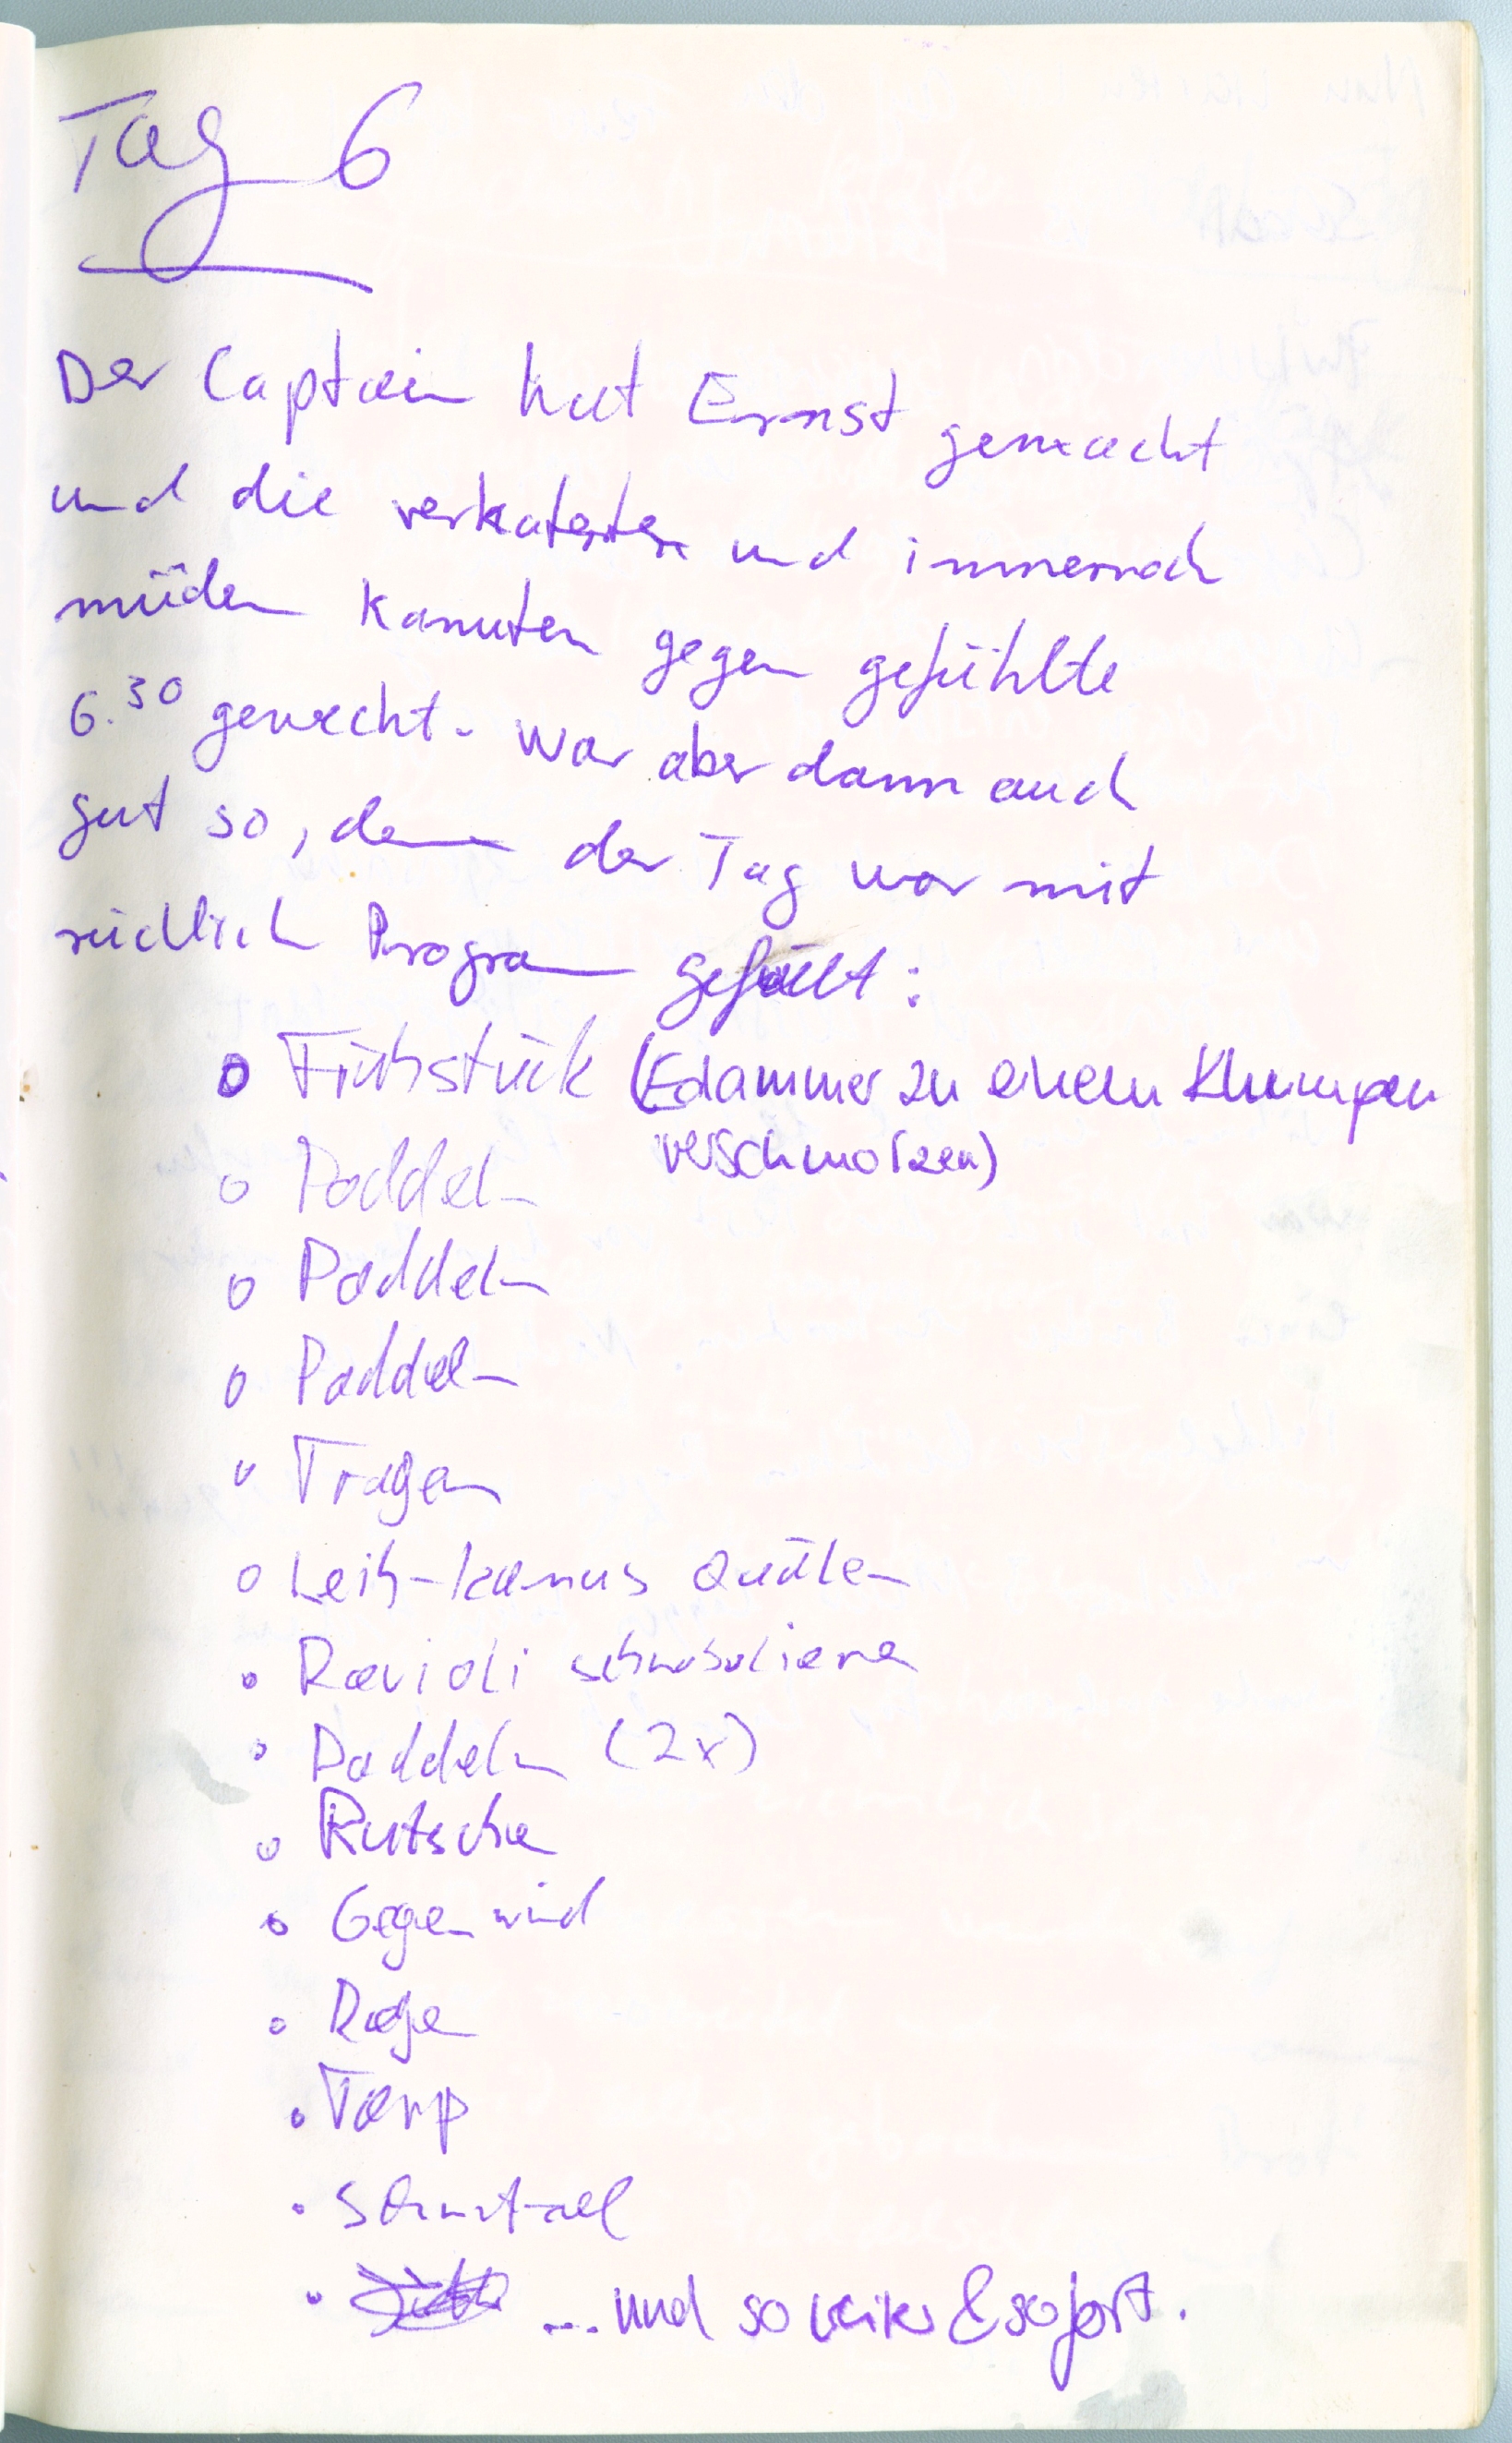 Tag 6
Der Captain hat Ernst gemacht
und die verkaterten und immernoch
müden Kanuten gegen gefühlte
6.30 geweckt. War aber dann auch
gut so, denn der Tag war mit
reichlich Program gefüllt:
o Frühstück (Edammer zu einem Klumpen
verschmolzen)
o Paddeln
o Paddeln
o Paddeln
o Tragen
o Leih-Kanus quälen
o Ravioli schnabulieren
o Paddeln (2x)
o Rutsche
o Gegenwind
o Regen
o Tarp
o
o ... und so weiter & so fort.